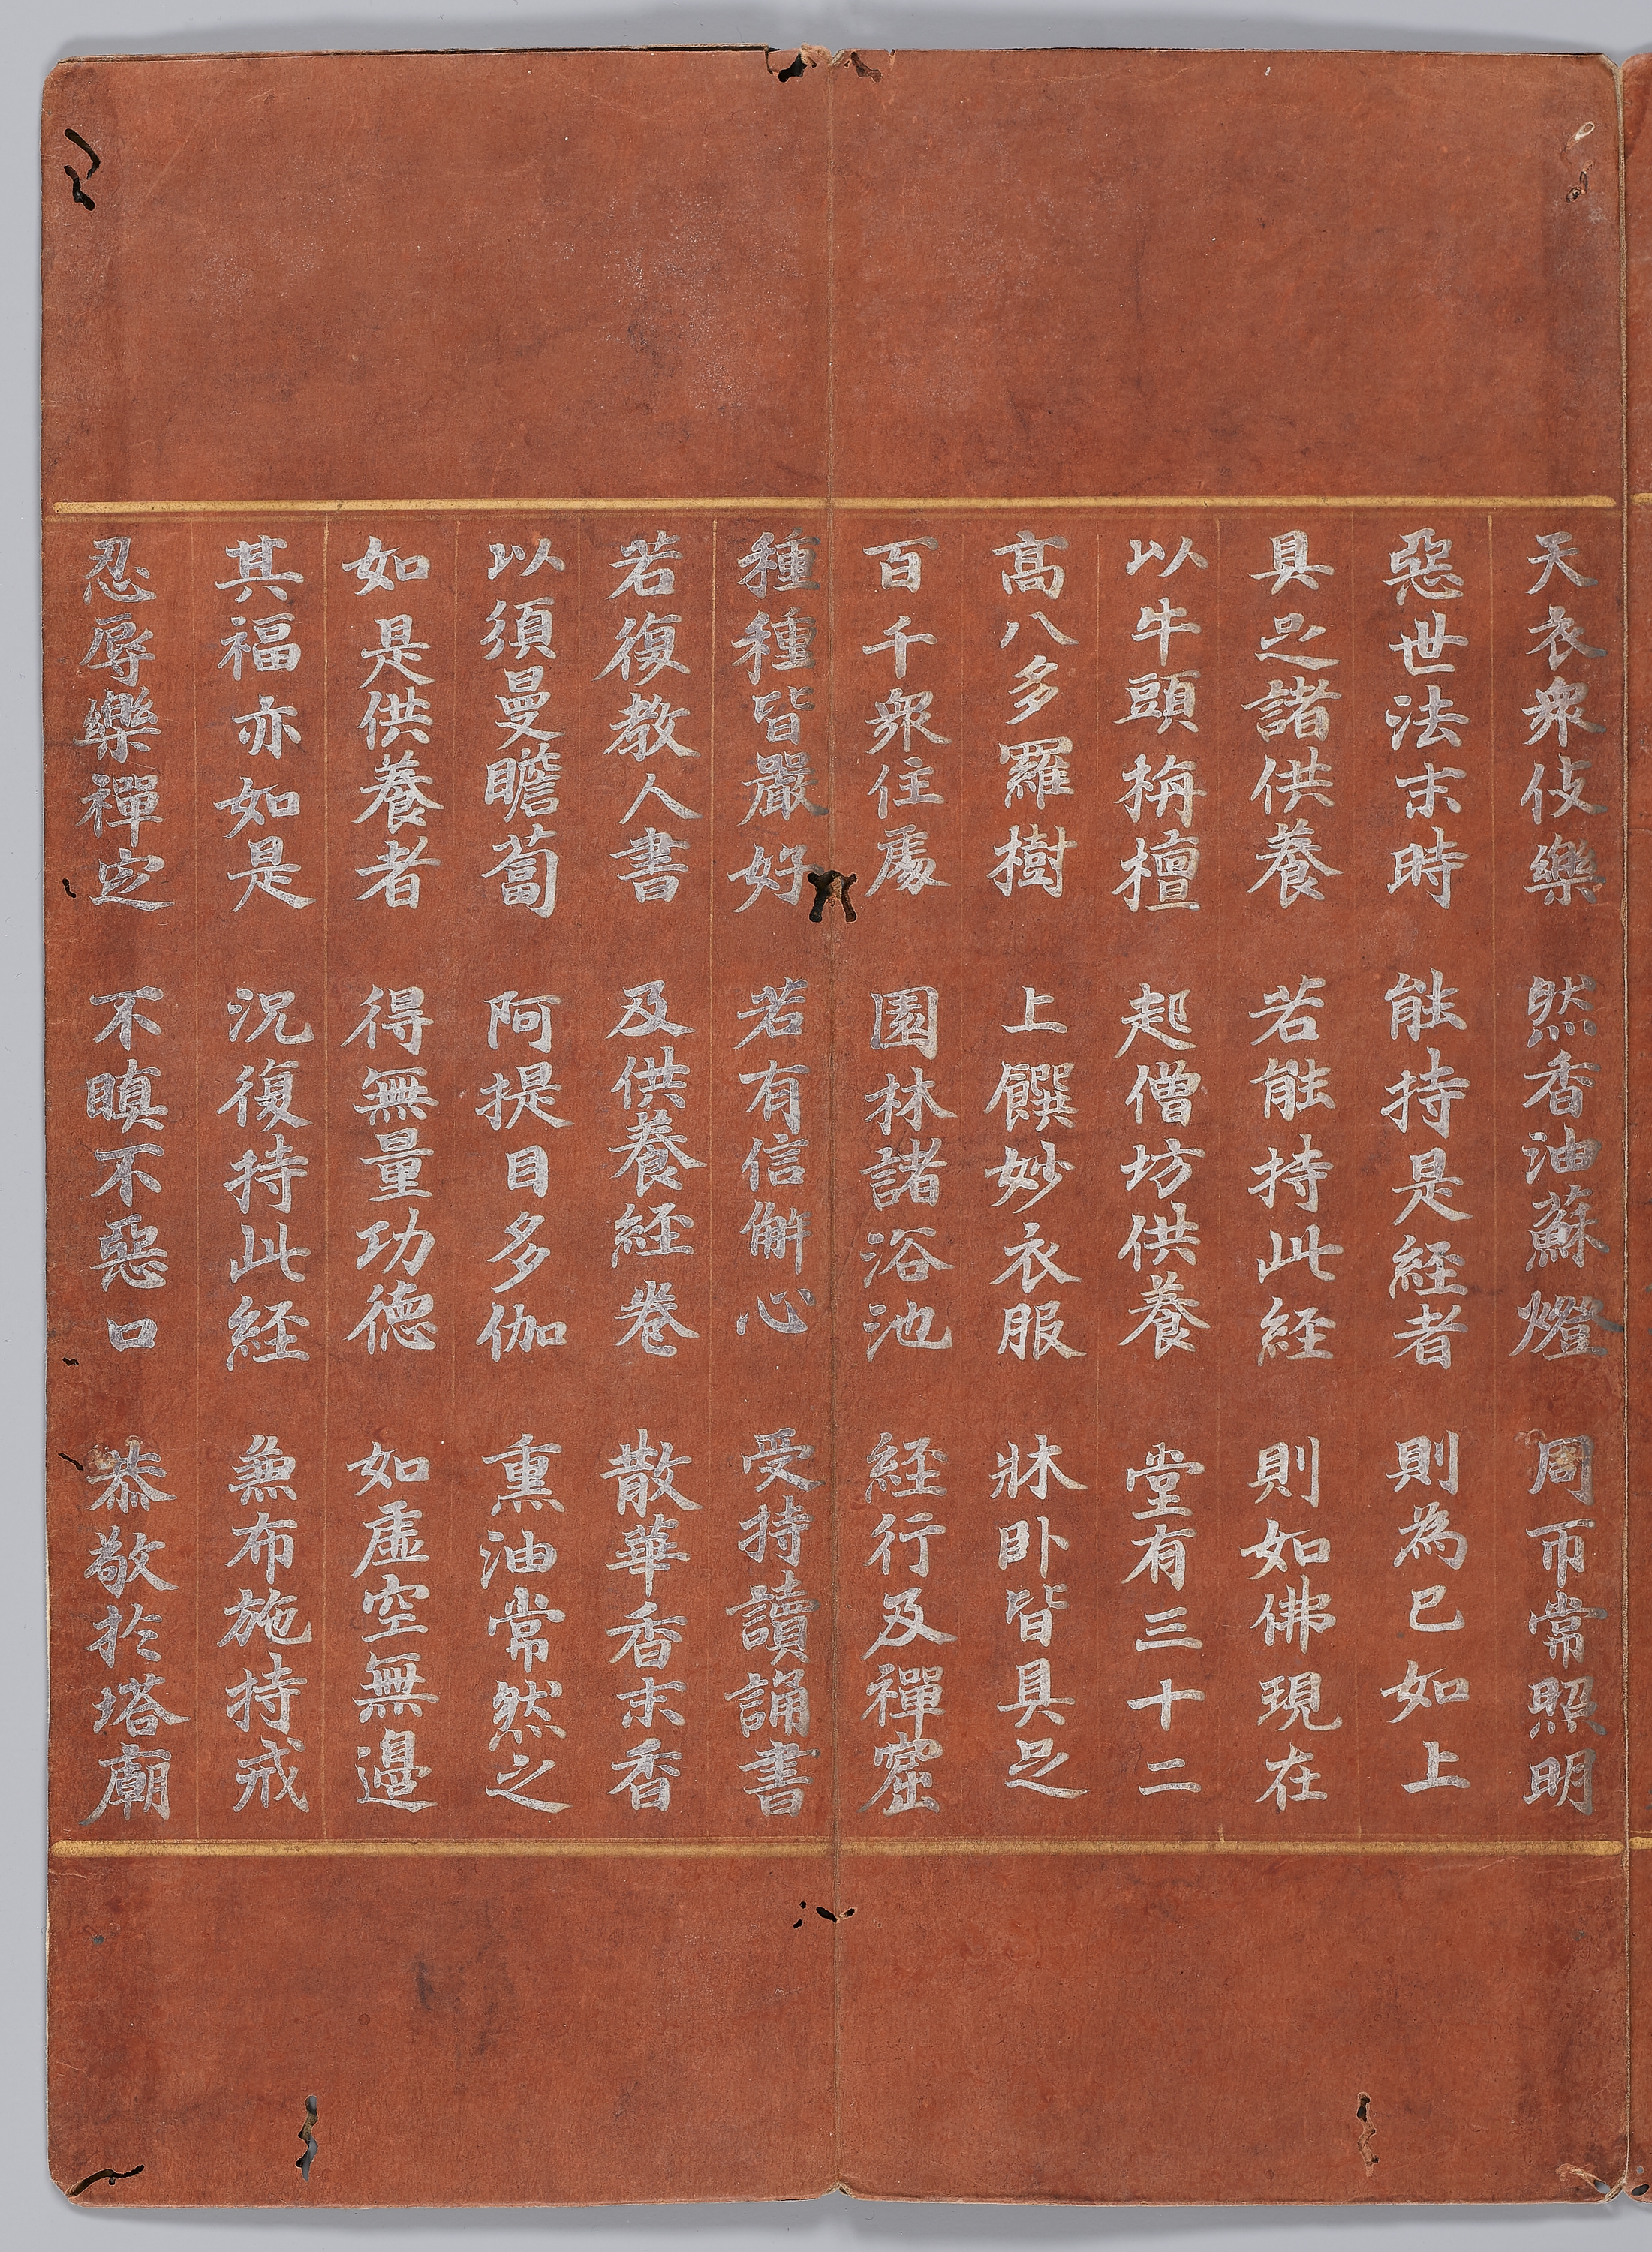 天衣衆伎樂 然香油蘇燈 周帀常照明
惡世法末時 能持是経者 則為已如上
具足諸供養 若能持此経 則如佛現在
以牛頭栴檀 起僧坊供養 堂有三十二
髙八多羅樹 上饌妙衣服 牀卧皆具足
百千衆住處 園林諸浴池 経行及禪窟
種種皆嚴好 若有信解心 受持讀誦書
若復教人書 及供養経卷 散華香末香
以須曼瞻蔔 阿提目多伽 熏油常然之
如是供養者 得無量功德 如虛空無邊
其福亦如是 況復持此経 兼布施持戒
忍辱樂禪定 不瞋不惡口 恭敬於塔廟